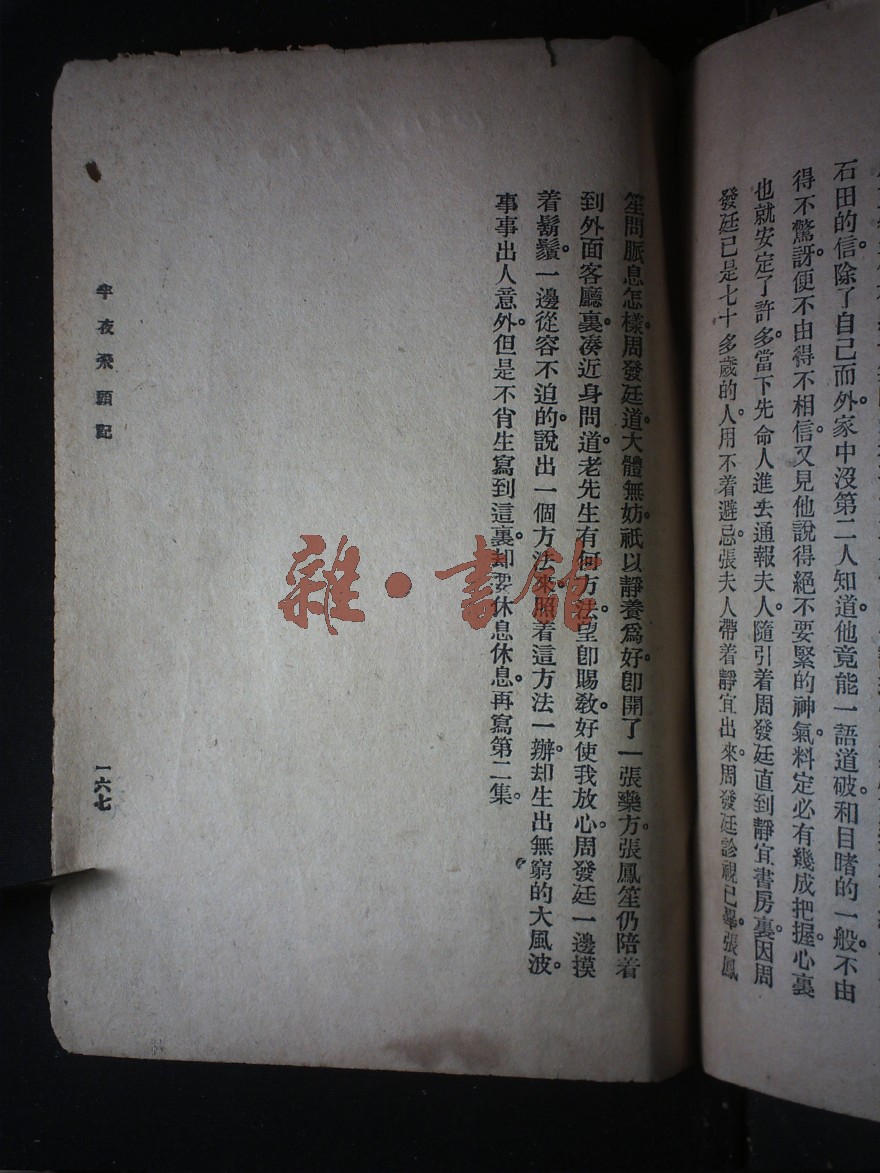 石田的信。除了自己而外。家中沒第二人知道。他竟能一語道破。和目睹的一般。不由
得不驚訝。便不由得不相信。又見他說得絕不要緊的神氣。料定必有幾成把握。心裏
也就安定了許多。當下先命人進去通報夫人。隨引着周發廷直到靜宜書房裏。因周
發廷已是七十多歲的人。用不着避忌。張夫人帶着靜宜出來。周發廷診視已畢。張鳳
笙問脈息怎樣。周發廷道。大體無妨。祇以靜養爲好。卽開了一張藥方。張鳳笙仍陪着
到外面客廳裏。湊近身問道。老先生有何方法。望卽賜教。好使我放心。周發廷一邊摸
着鬍鬚。一邊從容不迫的。說出一個方法來。照着這方法一辦。却生出無窮的大風波。
事事出人意外。但是不肖生寫到這裏。却要休息休息。再寫第二集。
半夜飛頭記
一六七
雜·書館